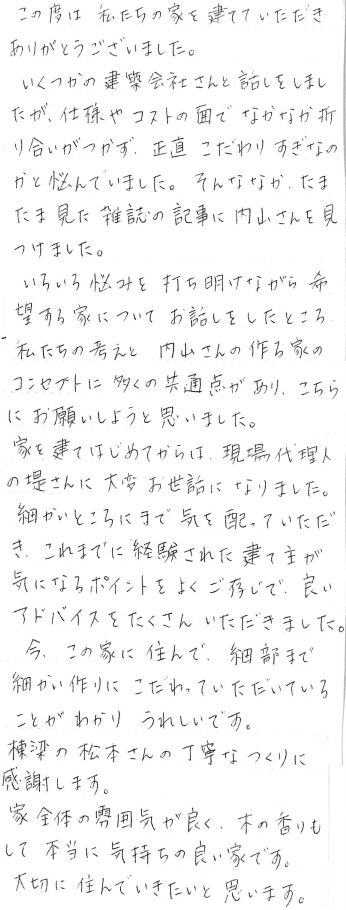 この度は 私たちの家を建てていただき
ありがとうございました。
いくつかの建築会社さんと話しをしまし
たが、仕様やコストの面で なかなか折
り合いがつかず、正直 こだわりすぎなの
かと悩んでいました。そんななか、たま
たま見た 雑誌の記事に内山さんを見
つけました。
いろいろ悩みを 打ち明けながら 希
望する家について お話しをしたところ、
私たちの考えと 内山さんの作る家の
コンセプトに 多くの共通点があり、こちら
にお願いしようと思いました。
家を建てはじめてからは、現場代理人
の堤さんに 大変お世話になりました。
細かいところにまで 気を配っていただ
き、これまでに経験された建て主が
気になるポイントをよくご存じで、良い
アドバイスをたくさん いただきました。
今、この家に住んで、細部まで
細かい作りに こだわっていただいている
ことがわかり うれしいです。
棟梁の松本さんの丁寧なつくりに
感謝します。
家全体の雰囲気が良く、木の香りも
して 本当に気持ちの良い家です。
大切に住んでいきたいと思います。